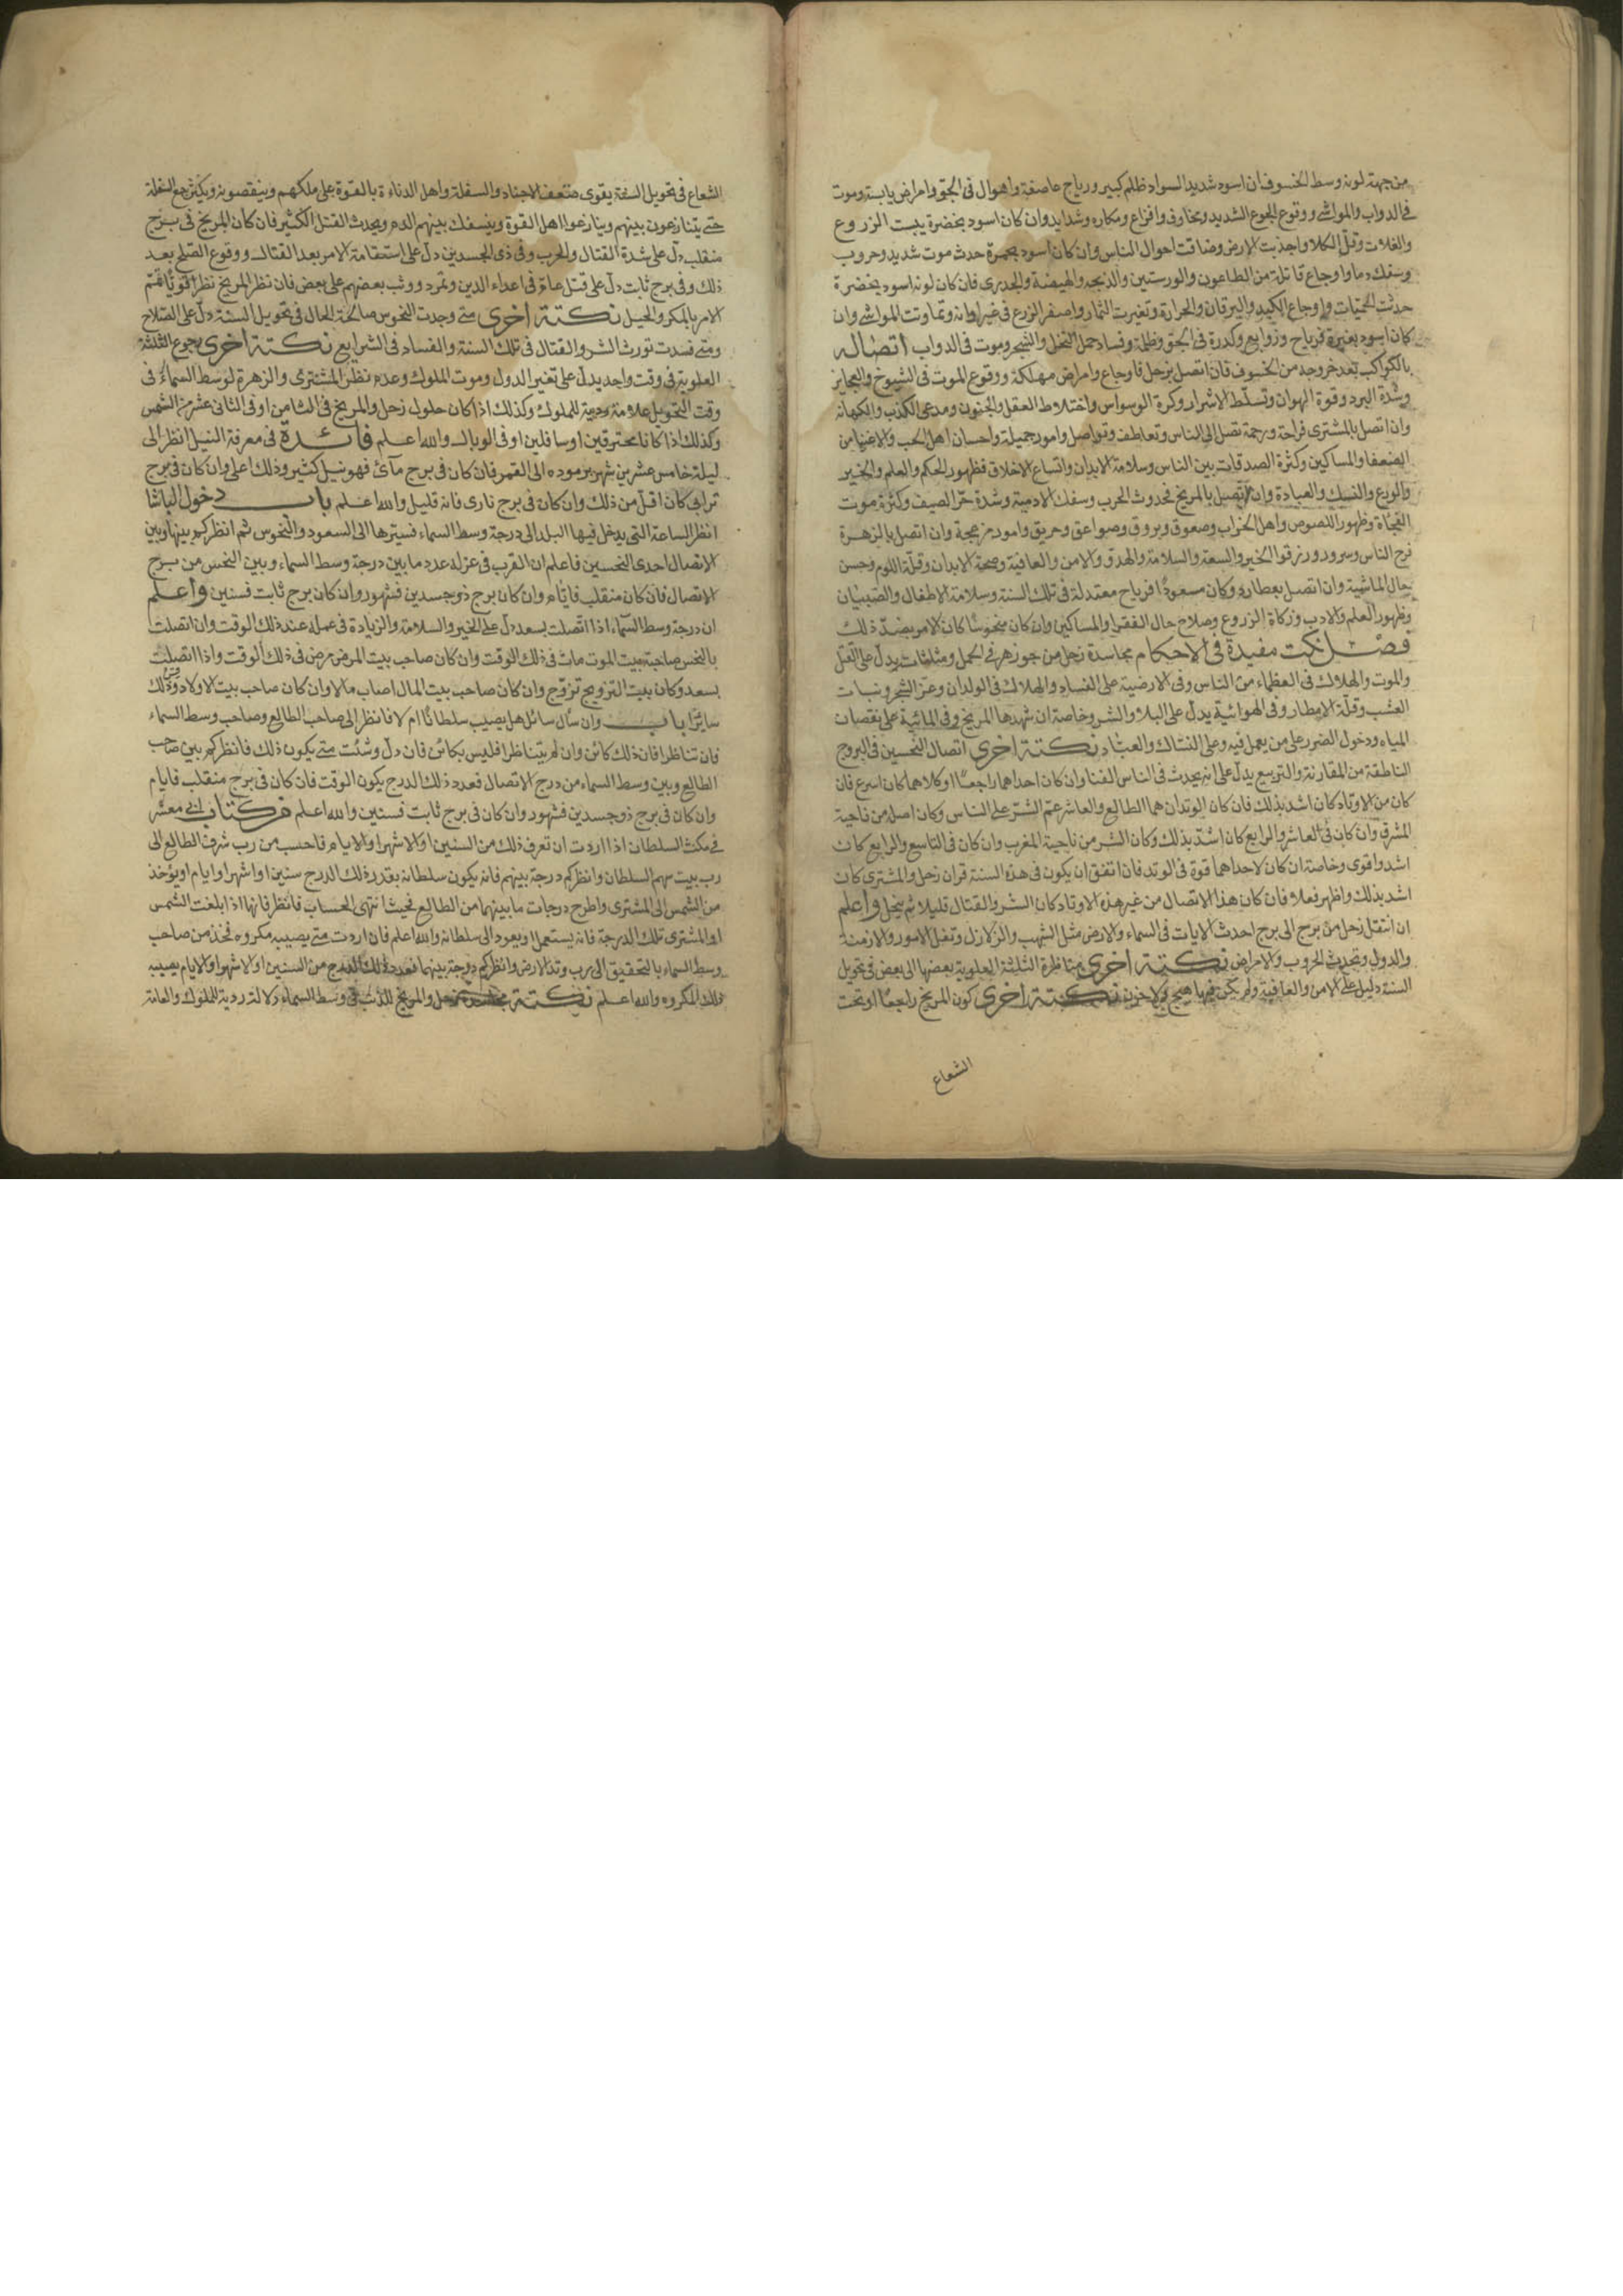 من جهة لونه وسط الخسوف ان اسود شديد السواد ظلم كبير ورياح عاصفة واهوال فى الجو وامراض يابسة وموت
فى الدواب والمواشى ووقوع الجوع الشديد ومخاوف وافزاع ومكاره وشدايد وان كان اسود بخضرة يبست الزروع
والغلات وقل الكلا واجذبت الارض وضاقت احوال الناس وان كان اسود بحمرة حدث موت شديد وحروب
وسفك دما واوجاع قاتلة من الطاعون والورستين والذبحه والهيضة والجدرى فان كان لونه اسود بخضرة
حدثت الحميات واوجاع الكبد واليرقان والحرارة وتغيرت الثمار واصفر الزرع فى غير اوانه وتماوتت المواشى وان
كان اسود بغبرة فرياح وزوابع وكدرة فى الجو وظلمة وفساد حمل النخل والشجر وموت فى الدواب اتصاله
بالكواكب بعد خروجه من الخسوف فان اتصل بزحل فاوجاع وامراض مهلكة ووقوع الموت فى الشيوخ والعجايز
وشدة البرد وقوة الهوان وتسلط الاشرار وكرة الوسواس واختلاط العقل والجنون ومدعى الكذب والكهانه
وان اتصل بالمشترى فراحة ورحمة تصل الى الناس وتعاطف وتواصل وامور جميلة واحسان اهل الحب والاغنيا من
الضعفا والمساكين وكثرة الصدقات بين الناس وسلامة الابدان واتساع الاخلاق فظهور الحكم والعلم والخير
والورع والنسك والعبادة وان اتصل بالمريخ فحدوث الحرب وسفك الادمية وشدة حر الصيف وكثرة موت
الفجاة وظهور اللصوص واهل الخراب وصعوق وبروق وصواعق وحريق وامور مزعجة وان اتصل بالزهرة
فرح الناس وسرور ورزقوا الخير والسعة والسلامة والهدو والامن والعافية وصحة الابدان وقلة اللوم وحسن
حال الماشية وان اتصل بعطارد وكان مسعودا فرياح معتدلة فى تلك السنة وسلامة الاطفال والصبيان
وظهور العلم والادب وزكاة الزروع وصلاح حال الفقرا والمساكين وان كان منحوسا كان الامر بضد ذلك
فصل نكت مفيدة فى الاحكام مجاسدة زحل من جوزهر فى الحمل ومثلثاته يدل على القتل
والموت والهلاك فى العظماء من الناس وفى الارضية على الفساد والهلاك فى الولدان وعز الشجر ونبات
العشب وقلة الامطار وفى الهوائية يدل على البلا والشر وخاصة ان شهدها المريخ وفى المائية على نقصان
المياه ودخول الضرر على من يعمل فيه وعلى النساك والعباد نكتة اخرى اتصال النحسين فى البروج
الناطقة من المقارنة والتربيع يدل على انه يحدث فى الناس الفنا وان كان احداهما راجعا او كلاهما كان اسرع فان
كان من الاوتاد كان اشد بذلك فان كان الوتدان هما الطالع والعاشر عم الشر على الناس وكان اصله من ناحية
المشرق وان كان فى العاشر والرابع كان اشد بذلك وكان الشر من ناحية المغرب وان كان فى التاسع والرابع كان
اشد واقوى وخاصة ان كان لاحداهما قوة فى الوتد فان اتفق ان يكون فى هذه السنة قران زحل والمشترى كان
اشد بذلك واظهر فعلا فان كان هذا الاتصال من غير هذه الاوتاد كان الشر والقتال قليلا ثم ينحل واعلم
ان انتقل زحل من برج الى برج احدث الايات فى السماء والارض مثل الشهب والزلازل وتغل الامور والازمنة
والدول وتحدث الحروب والامراض نكتة اخرى مناظرة الثلثة العلوية بعضها الى بعض فى تحويل
السنة دليل على الامن والعافية ولم يكن فيها هيج ولا حزن نكتة اخرى كون المريخ راجعا او تحت
الشعاع
الشعاع فى تحويل السنة يقوى ضعف الاجناد والسفلة واهل الدناءة بالقوة على ملكهم وينقصونه ويكثر جمع السفلة
حتى يتنازعون بينهم وينازعوا اهل القوة وينسفك بينهم الدم ويحدث القتل الكثير فان كان المريخ فى برج
منقلب دل على شدة القتال والحرب وفى ذى الجسدين دل على استقامة الامر بعد القتال ووقوع الصلح بعد
ذلك وفى برج ثابت دل على قتل عام فى اعداء الدين وتمرد ووثب بعضهم على بعض فان نظر المريخ نظرا قويا تم
الامر بالمكر والحيل نكتة اخرى متى وجدت النحوس صالحة الحال فى تحويل السنة دل على الصلاح
ومتى فسدت تورث الشر والقتال فى تلك السنة والفساد فى الشرايع نكتة اخرى رجوع الثلثة
العلوية فى وقت واحد يدل على تغير الدول وموت الملوك وعدم نظر المشترى والزهرة لوسط السماء فى
وقت التحويل علامة ردية للملوك وكذلك اذا كان حلول زحل والمريخ فى الثامن او فى الثانى عشر من الشمس
وكذلك اذا كانا محترقين او سافلين او فى الوبال والله اعلم فائدة فى معرفة النيل انظر الى
ليلة خامس عشرين شهر برموده الى القمر فان كان فى برج مآئ فهو نيل كثير وذلك اعلى وان كان فى برج
ترابى كان اقل من ذلك وان كان فى برج نارى فانه قليل والله اعلم باب دخول الباشا
انظر الساعة التى يدخل فيها البلد الى درجة وسط السماء فسيرها الى السعود والنحوس ثم انظر كم بينها وبين
الاتصال احدى النحسين فاعلم ان القرب فى عزله عدد ما بين درجة وسط السماء وبين النحس من برج
الاتصال فان كان منقلب فايام وان كان برج ذو جسدين فشهور وان كان برج ثابت فسنين واعلم
ان درجة وسط السمآء اذا اتصلت بسعد دل على الخير والسلامة والزيادة فى عمله عند ذلك الوقت وان اتصلت
بالنحس صاحبة بيت الموت مات فى ذلك الوقت وان كان صاحب بيت المرض مرض فى ذلك الوقت واذا اتصلت
بسعد وكان بيت التزويج تزوج وان كان صاحب بيت المال اصاب مالا وان كان صاحب بيت الاولاد ذلك
سايرا باب وان سأل سائل هل يصيب سلطانا ام لا فانظر الى صاحب الطالع وصاحب وسط السماء
فان تناظرا فان ذلك كائن وان لم يتناظرا فليس بكائن فان دل وشئت متى يكون ذلك فانظر كم بين صاحب
الطالع وبين وسط السماء من درج الاتصال فعدد ذلك الدرج يكون الوقت فان كان فى برج منقلب فايام
وان كان فى برج ذو جسدين فشهور وان كان فى برج ثابت فسنين والله اعلم من كتاب ابى معشر
فى مكث السلطان اذا اردت ان تعرف ذلك من السنين او الاشهر او الايام فاحسب من رب شرف الطالع الى
رب بيت سهم السلطان وانظر كم درجة بينهم فانه يكون سلطانه بقدر ذلك الدرج سنين او اشهر او ايام او يؤخذ
من الشمس الى المشترى واطرح درجات ما بينهما من الطالع فحيث انتهى الحساب فانظر فانها اذا بلغت الشمس
او المشترى تلك الدرجة فانه يستعمل او يعود الى سلطانه والله اعلم فان اردت متى يصيبه مكروه فخذ من صاحب
وسط السماء بالتحقيق الى رب وتد الارض وانظر كم درجة بينهما فعدد ذلك الدرج من السنين او الاشهر او الايام يصيبه
ذلك المكروه والله اعلم نكتة زحل والمريخ للذنب فى وسط السماء دلالة ردية للملوك والعامة